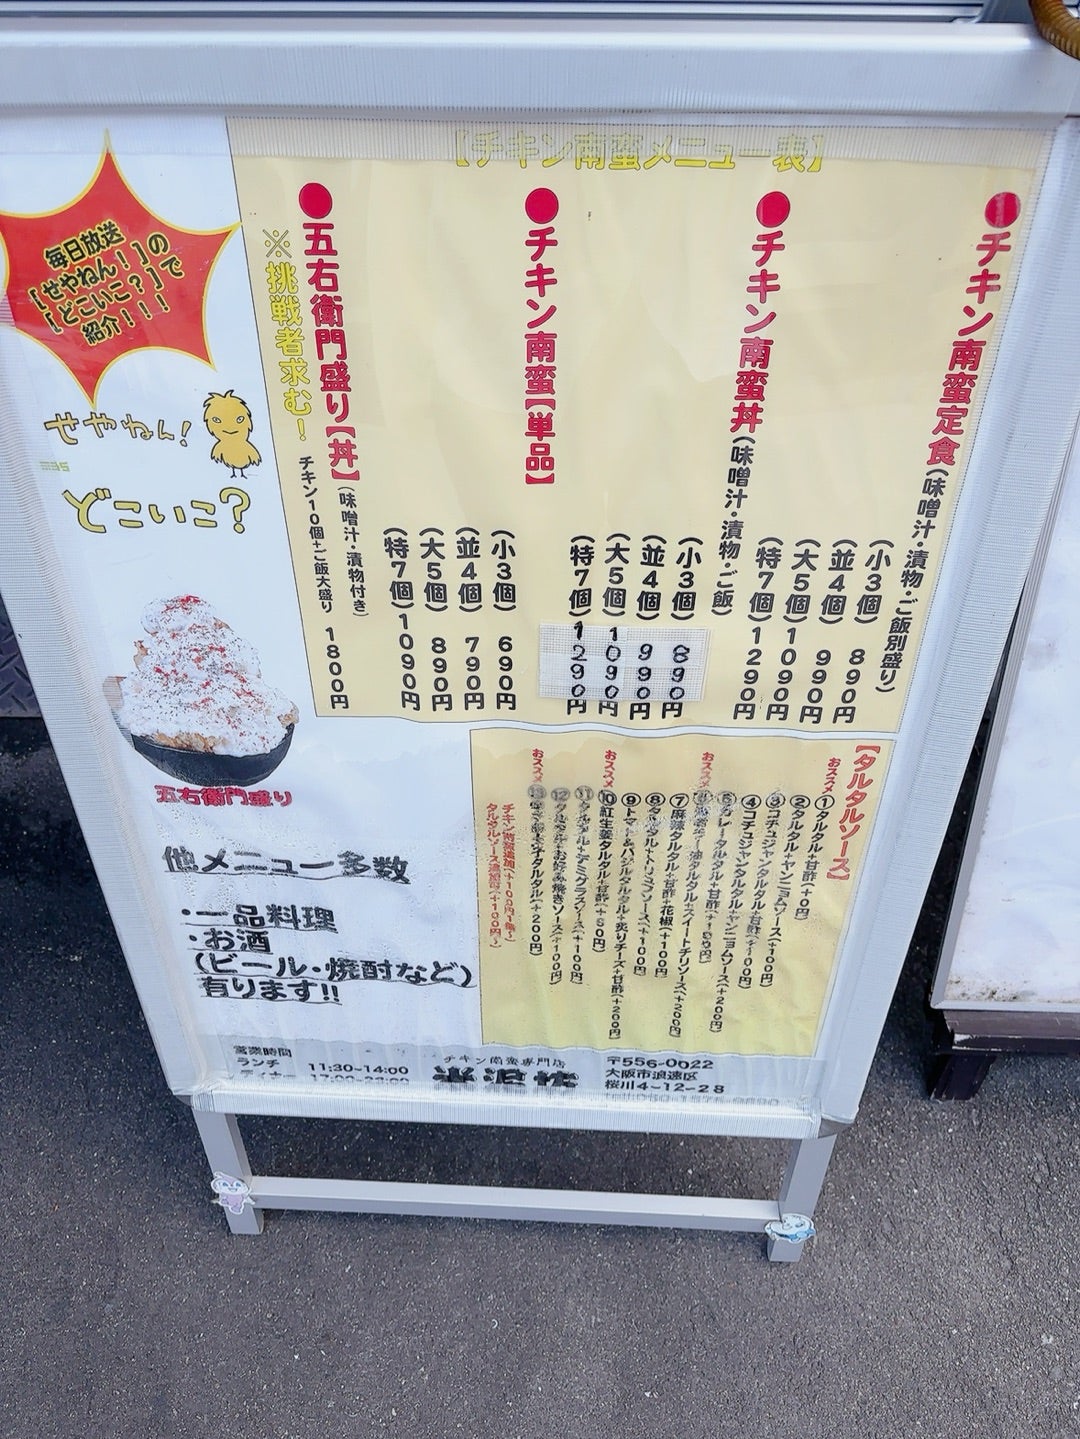 【チキン南蛮メニュー表】
●チキン南蛮定食(味噌汁・漬物・ご飯別盛り)
(小3個) 890円
(並4個) 990円
(大5個)1090円
(特7個)1290円
●チキン南蛮丼(味噌汁・漬物・ご飯)
(小3個) 890円
(並4個) 990円
(大5個)1090円
(特7個)1290円
●チキン南蛮【単品】
(小3個) 690円
(並4個) 790円
(大5個) 890円
(特7個)1090円
●五右衛門盛り【丼】(味噌汁・漬物付き)
チキン10個+ご飯大盛り 1800円
※挑戦者求む!
毎日放送
[せやねん!]の
[どこいこ?]で
紹介!!!
せやねん!
どこいこ?
五右衛門盛り
他メニュー多数
・一品料理
・お酒
(ビール・焼酎など)
有ります!!
【タルタルソース】
おススメ①タルタル+甘酢(+0円)
②タルタル+ヤンニョムソース(+100円)
③コチュジャンタルタル+甘酢(+100円)
④コチュジャンタルタル+ヤンニョムソース(+200円)
⑤カレータルタル+甘酢(+100円)
おススメ
タルタル+スイートチリソース(+200円)
⑦麻辣タルタル+甘酢+花椒(+100円)
⑧タルタル+トリュフソース(+100円)
⑨トマト&バジルタルタル+炙りチーズ+甘酢(+200円)
おススメ⑩紅生姜タルタル+甘酢(+50円)
⑪タルタル+デミグラスソース(+100円)
⑫タルタル+お好み焼きソース(+100円)
おススメ⑬
タルタル(+200円)
チキン南蛮追加(+100円/1個~)
タルタルソース追加(+100円~)
営業時間
ランチ 11:30-14:00
ディナー
チキン南蛮専門店
〒556-0022
大阪市浪速区
桜川4-12-28